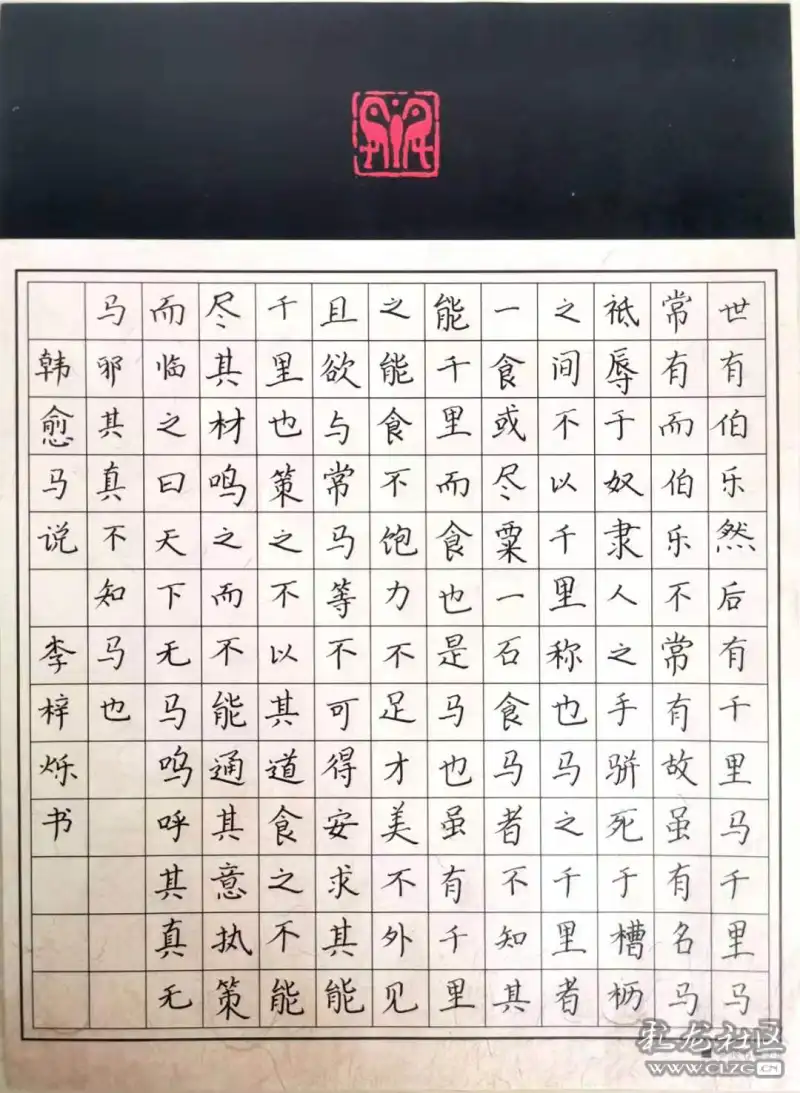 世有伯乐然后有千里马千里马
常有而伯乐不常有故虽有名马
祗辱于奴隶人之手骈死于槽枥
之间不以千里称也马之千里者
一食或尽粟一石食马者不知其
能千里而食也是马也虽有千里
之能食不饱力不足才美不外见
且欲与常马等不可得安求其能
千里也策之不以其道食之不能
尽其材鸣之而不能通其意执策
而临之曰天下无马呜呼其真无
马邪其真不知马也
韩愈马说 李梓烁书
彩龙社区
WWW.CLZG.CN